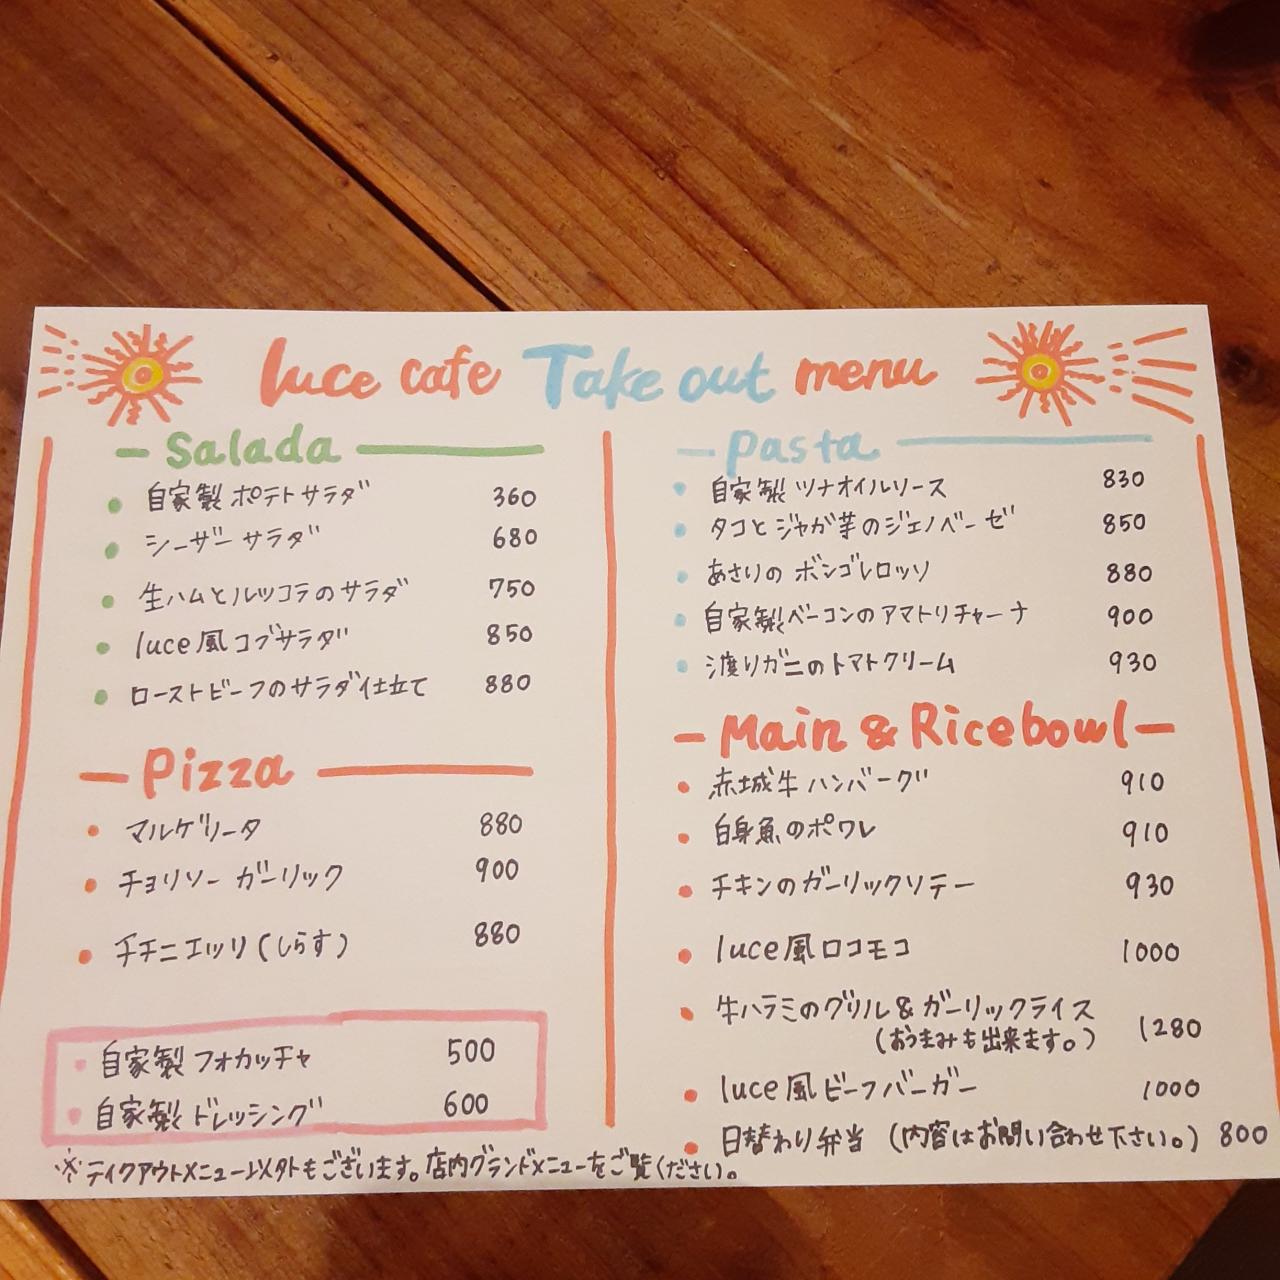 luce cafe Take out menu
Salada
自家製ポテトサラダ 360
シーザーサラダ 680
生ハムとルッコラのサラダ 750
luce風コブサラダ 850
ローストビーフのサラダ仕立て 880
Pizza
マルゲリータ 880
チョリソーガーリック 900
チチニエッリ(しらす) 880
自家製フォカッチャ 500
自家製ドレッシング 600
Pasta
自家製ツナオイルソース 830
タコとジャガ芋のジェノベーゼ 850
あさりのボンゴレロッソ 880
自家製ベーコンのアマトリチャーナ 900
渡りガニのトマトクリーム 930
Main & Ricebowl
赤城牛ハンバーグ 910
白身魚のポワレ 910
チキンのガーリックソテー 930
luce風ロコモコ 1000
牛ハラミのグリル&ガーリックライス
(おつまみも出来ます。) 1280
luce風ビーフバーガー 1000
日替わり弁当 (内容はお問い合わせ下さい。) 800
※テイクアウトメニュー以外もございます。店内グランドメニューをご覧ください。